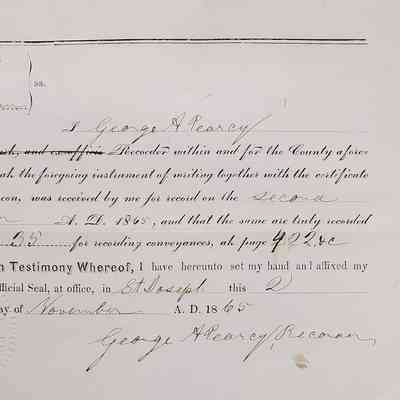 ss.
I George A Pearcy
and ex-officio Recorder within and for the County afore
the foregoing instrument of writing together with the certificate
was received by me for record on the second
A. D. 1865, and that the same are truly recorded
35 for recording conveyances, at page 422 &c
Testimony Whereof, I have hereunto set my hand and affixed my
fficial Seal, at office, in St Joseph this 2
ay of November A. D. 1865
George A Pearcy, Recorder